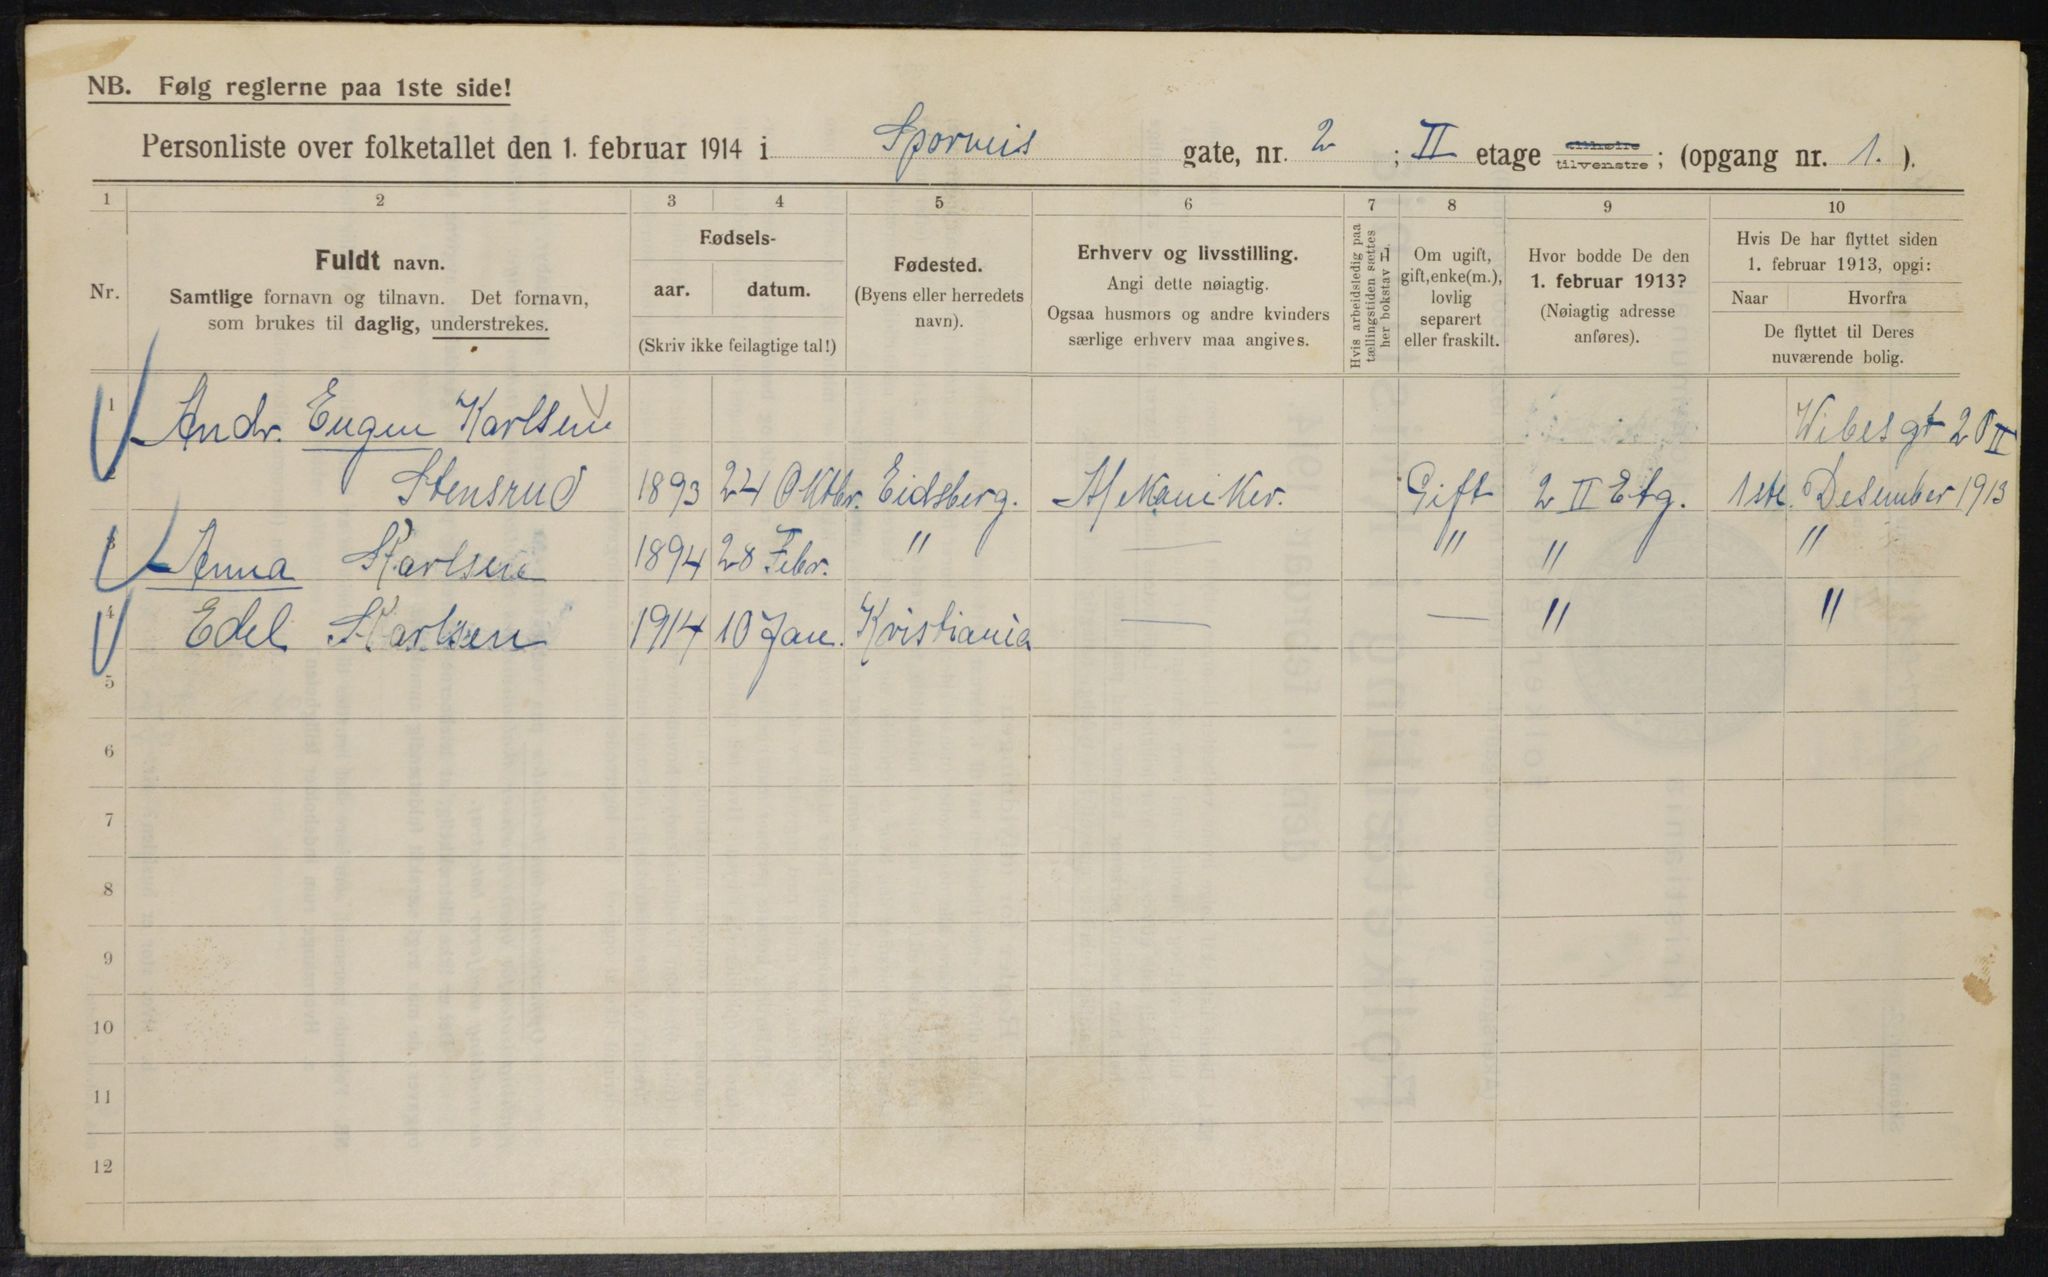 NB. Følg reglerne paa 1ste side!
Personliste over folketallet den 1. februar 1914 i Sporveis gate, nr. 2 ; II etage tilhøire tilvenstre; (opgang nr. 1. ).
1 2 3 4 5 6 7 8 9 10
Nr.
Fuldt navn.
Samtlige fornavn og tilnavn. Det fornavn,
som brukes til daglig, understrekes.
Fødsels-
aar. datum.
(Skriv ikke feilagtige tal!)
Fødested.
(Byens eller herredets
navn).
Erhverv og livsstilling.
Angi dette nøiagtig.
Ogsaa husmors og andre kvinders
særlige erhverv maa angives.
Hvis arbeidsledig paa
tællingstiden sættes
her bokstav H.
Om ugift,
gift, enke(m.),
lovlig
separert
eller fraskilt.
Hvor bodde De den
1. februar 1913?
(Nøiagtig adresse
anføres).
Hvis De har flyttet siden
1. februar 1913, opgi:
Naar Hvorfra
De flyttet til Deres
nuværende bolig.
1 Andr. Eugen Karlsen Wibes gt 20 II
2 Stensrud 1893 24 Oktbr. Eidsberg. Mekaniker. Gift 2 II Etg. 1ste Desember 1913
3 Anna Karlsen 1894 28 Febr. " — " " "
4 Edel Karlsen 1914 10 Jan. Kristiania — — " "
5
6
7
8
9
10
11
12